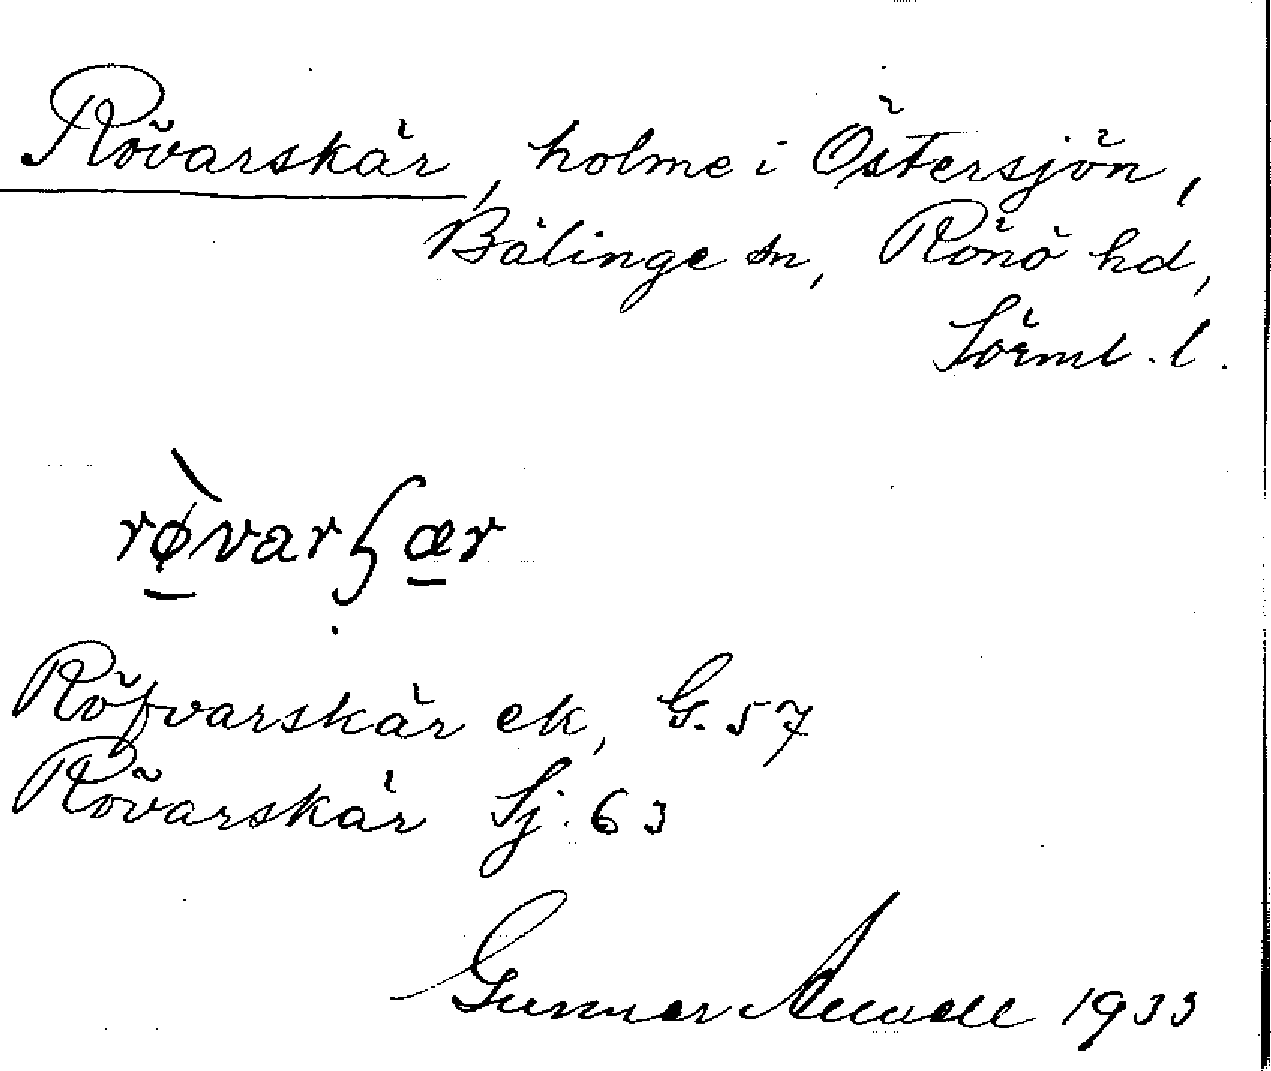 Rövarskär, holme i Östersjön,
Bälinge sn, Rönö hd,
Sörml. l.
Röfvarskär ek, G. 57
Rövarskär Sj. 63
Gunnar 1933